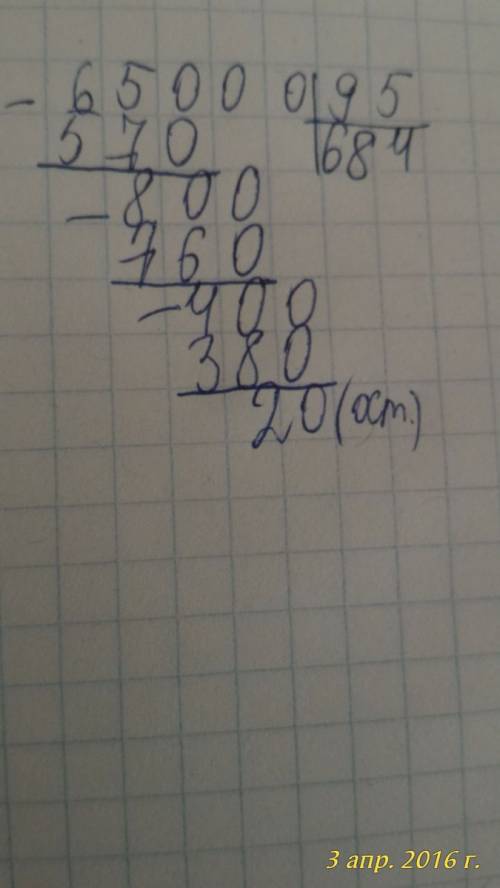 - 65000|95
570 |684
-800
760
-400
380
20 (ост.)
3 апр. 2016 г.